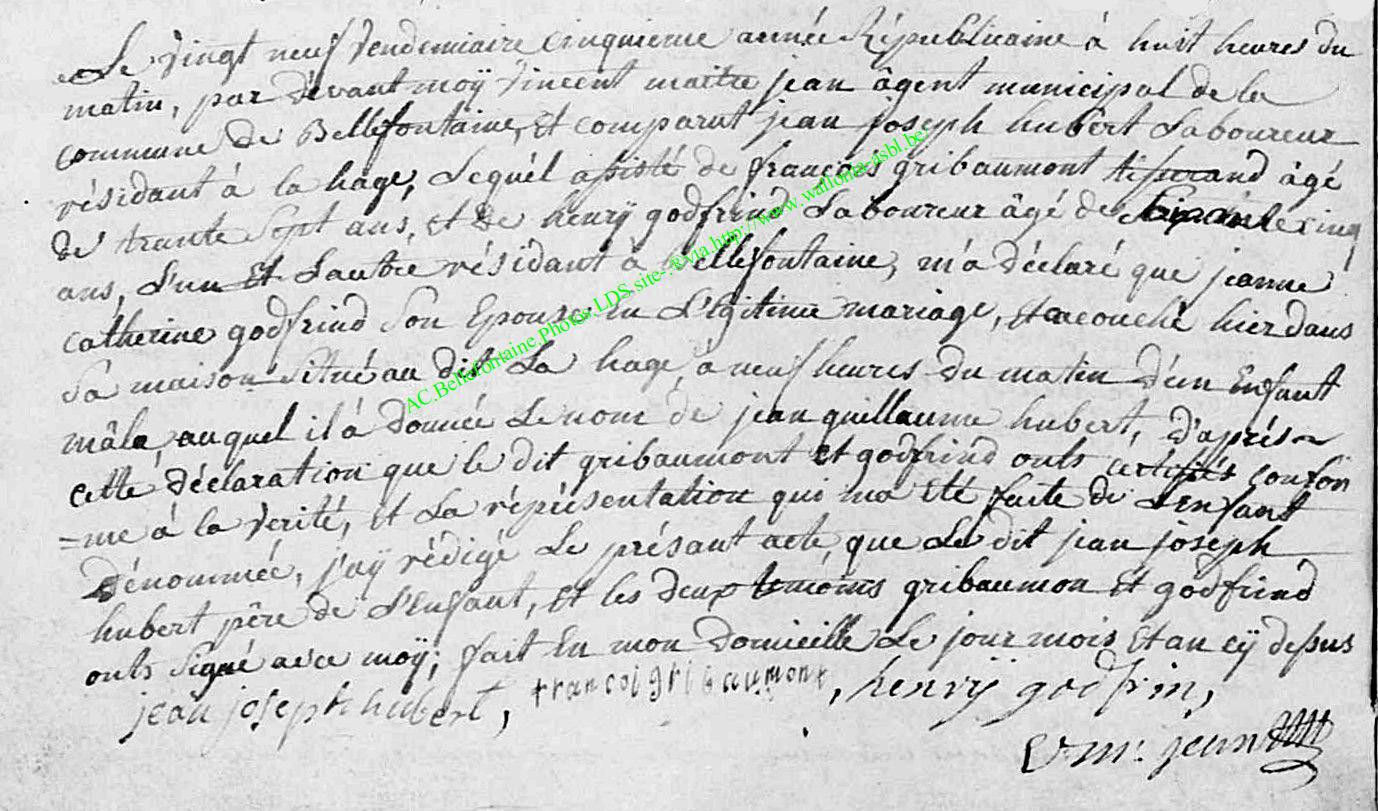 Le vingt neuf vendemiaire cinquieme année Républicaine à huit heures du
matin, par dévant moÿ vincent maitre jean âgent municipal de la
commune de Bellefontaine, et comparut jean joseph hubert Laboureur
résidant à la hage, Lequél assisté de françois gribaumont tisserand âgé
de trante Sept ans, et de henrÿ godfrind Laboureur âgé de cinq
ans, L'un Et Lautre résidant à bellefontaine, m'a déclaré que jeanne
catherine godfrind Son Epouse En Légitime mariage, Et acouché hier dans
Sa maison Situé au dit La hage, à neuf heures du matin d'un Enfant
mâle, auquel il à donnée Le nom de jean guillaume hubert, d'aprés
cette déclaration que le dit gribaumont Et godfrind onts certifiés confor
=me à la verité, Et La répésentation qui ma Eté faite de L'enfant
dénommée, j'aÿ rédigé Le présant acte, que Le dit jean joseph
hubert pêre de L'Enfant, Et les deux temoins gribaumon Et godfrind
onts Signé avec moÿ; fait En mon domicille Le jour mois Et an cÿ dessus
jean joseph hubert, francoi gribaumont, henrij godfrin,
V. m. jean
AC.Bellefontaine.Photos.LDS.site-.®via.http://www.wallonia-asbl.be/